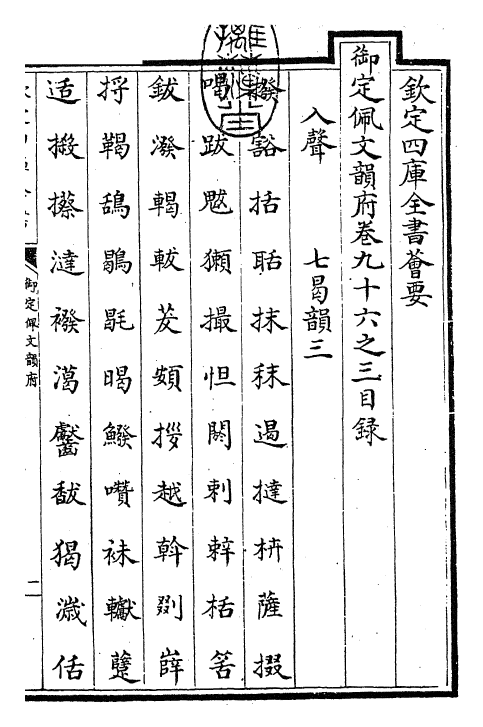 欽定四庫全書薈要
御定佩文韻府卷九十六之三目録
入聲 七曷韻三
撥豁括聒抹秣遏撻枿薩掇
喝跋魃獺撮怛闕剌𨐓栝筈
鈸潑䪚軷茇頞拶越斡剟嶭
捋鞨鴰鶡㲉暍鱍囋袜钀躠
适掇攃澾襏濭齾馛猲濊佸
御定佩文韻府
二